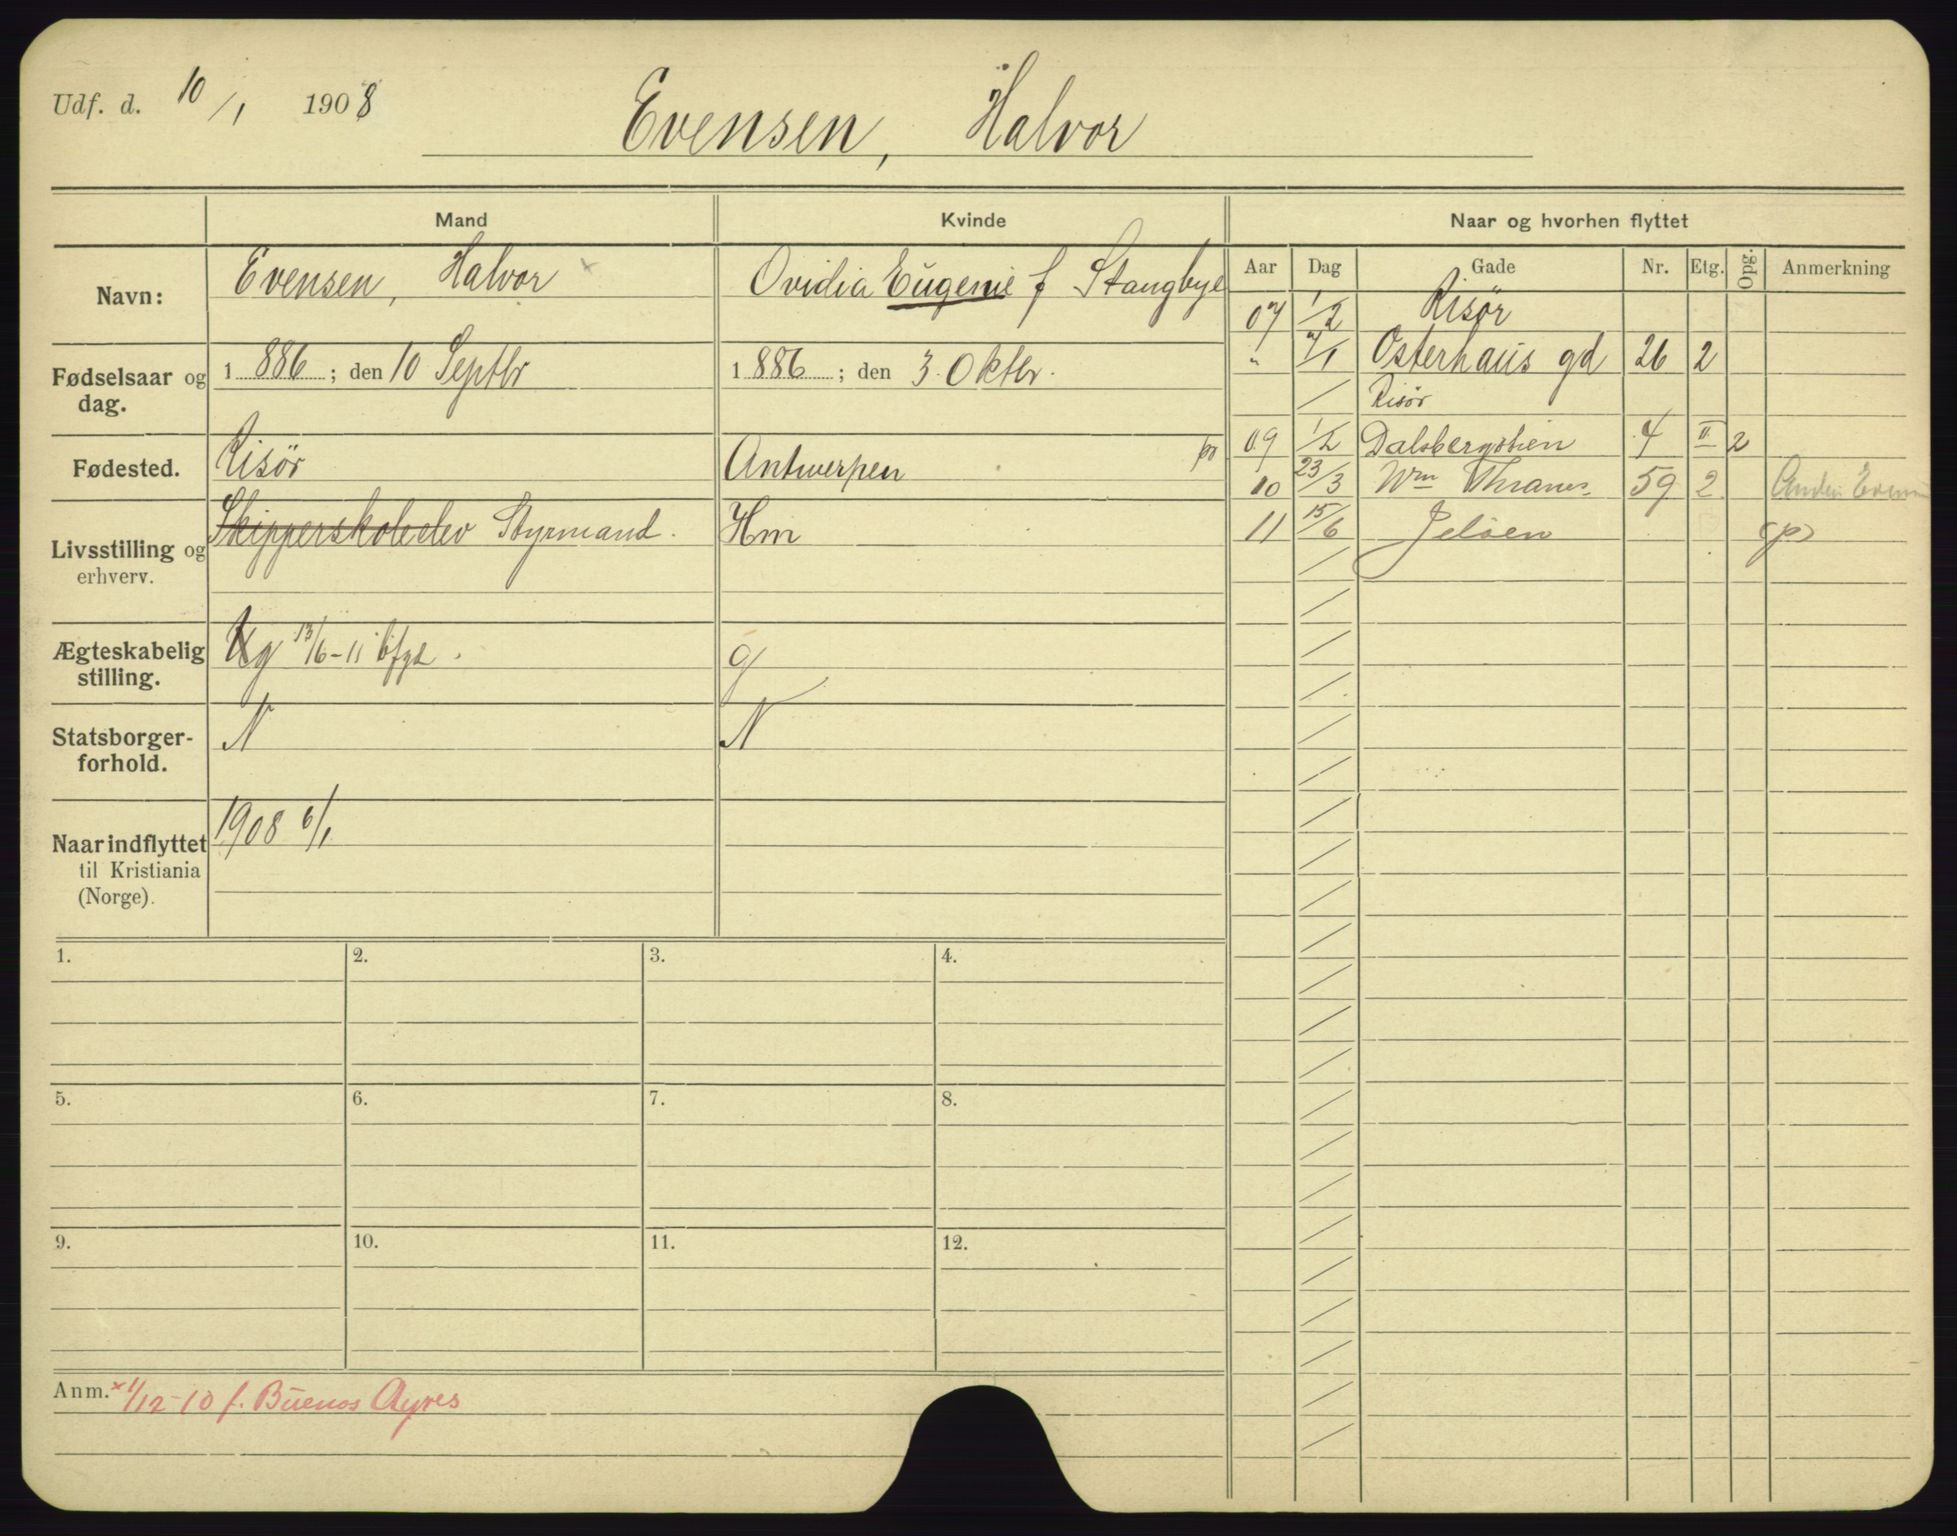 Udf. d. 10/1 1908
Evensen, Halvor
Mand Kvinde Naar og hvorhen flyttet
Aar Dag Gade Nr. Etg. Opg. Anmerkning
Navn: Evensen, Halvor × Ovidia Eugenie f Stangbye
07 1/2 Risør
" 7/1 Osterhaus gd 26 2
Fødselsaar og dag. 1 886 ; den 10 Septbr 1 886 ; den 3 Oktbr.
/ Risør
Fødested. Risør Antwerpen
09 1/2 Dalsbergstien 4 II 2
10 23/3 Wm Thranes 59 2
Livsstilling og erhverv. Skipperskoleelev Styrmand. Hm
11 15/6 Jeløen (p)
Ægteskabelig stilling. Ug 13/6-11 g
Statsborger-
forhold. N N
Naar indflyttet
til Kristiania
(Norge). 1908 6/1
1. 2. 3. 4.
5. 6. 7. 8.
9. 10. 11. 12.
Anm. × 1/12-10 f. Buenos Ayres